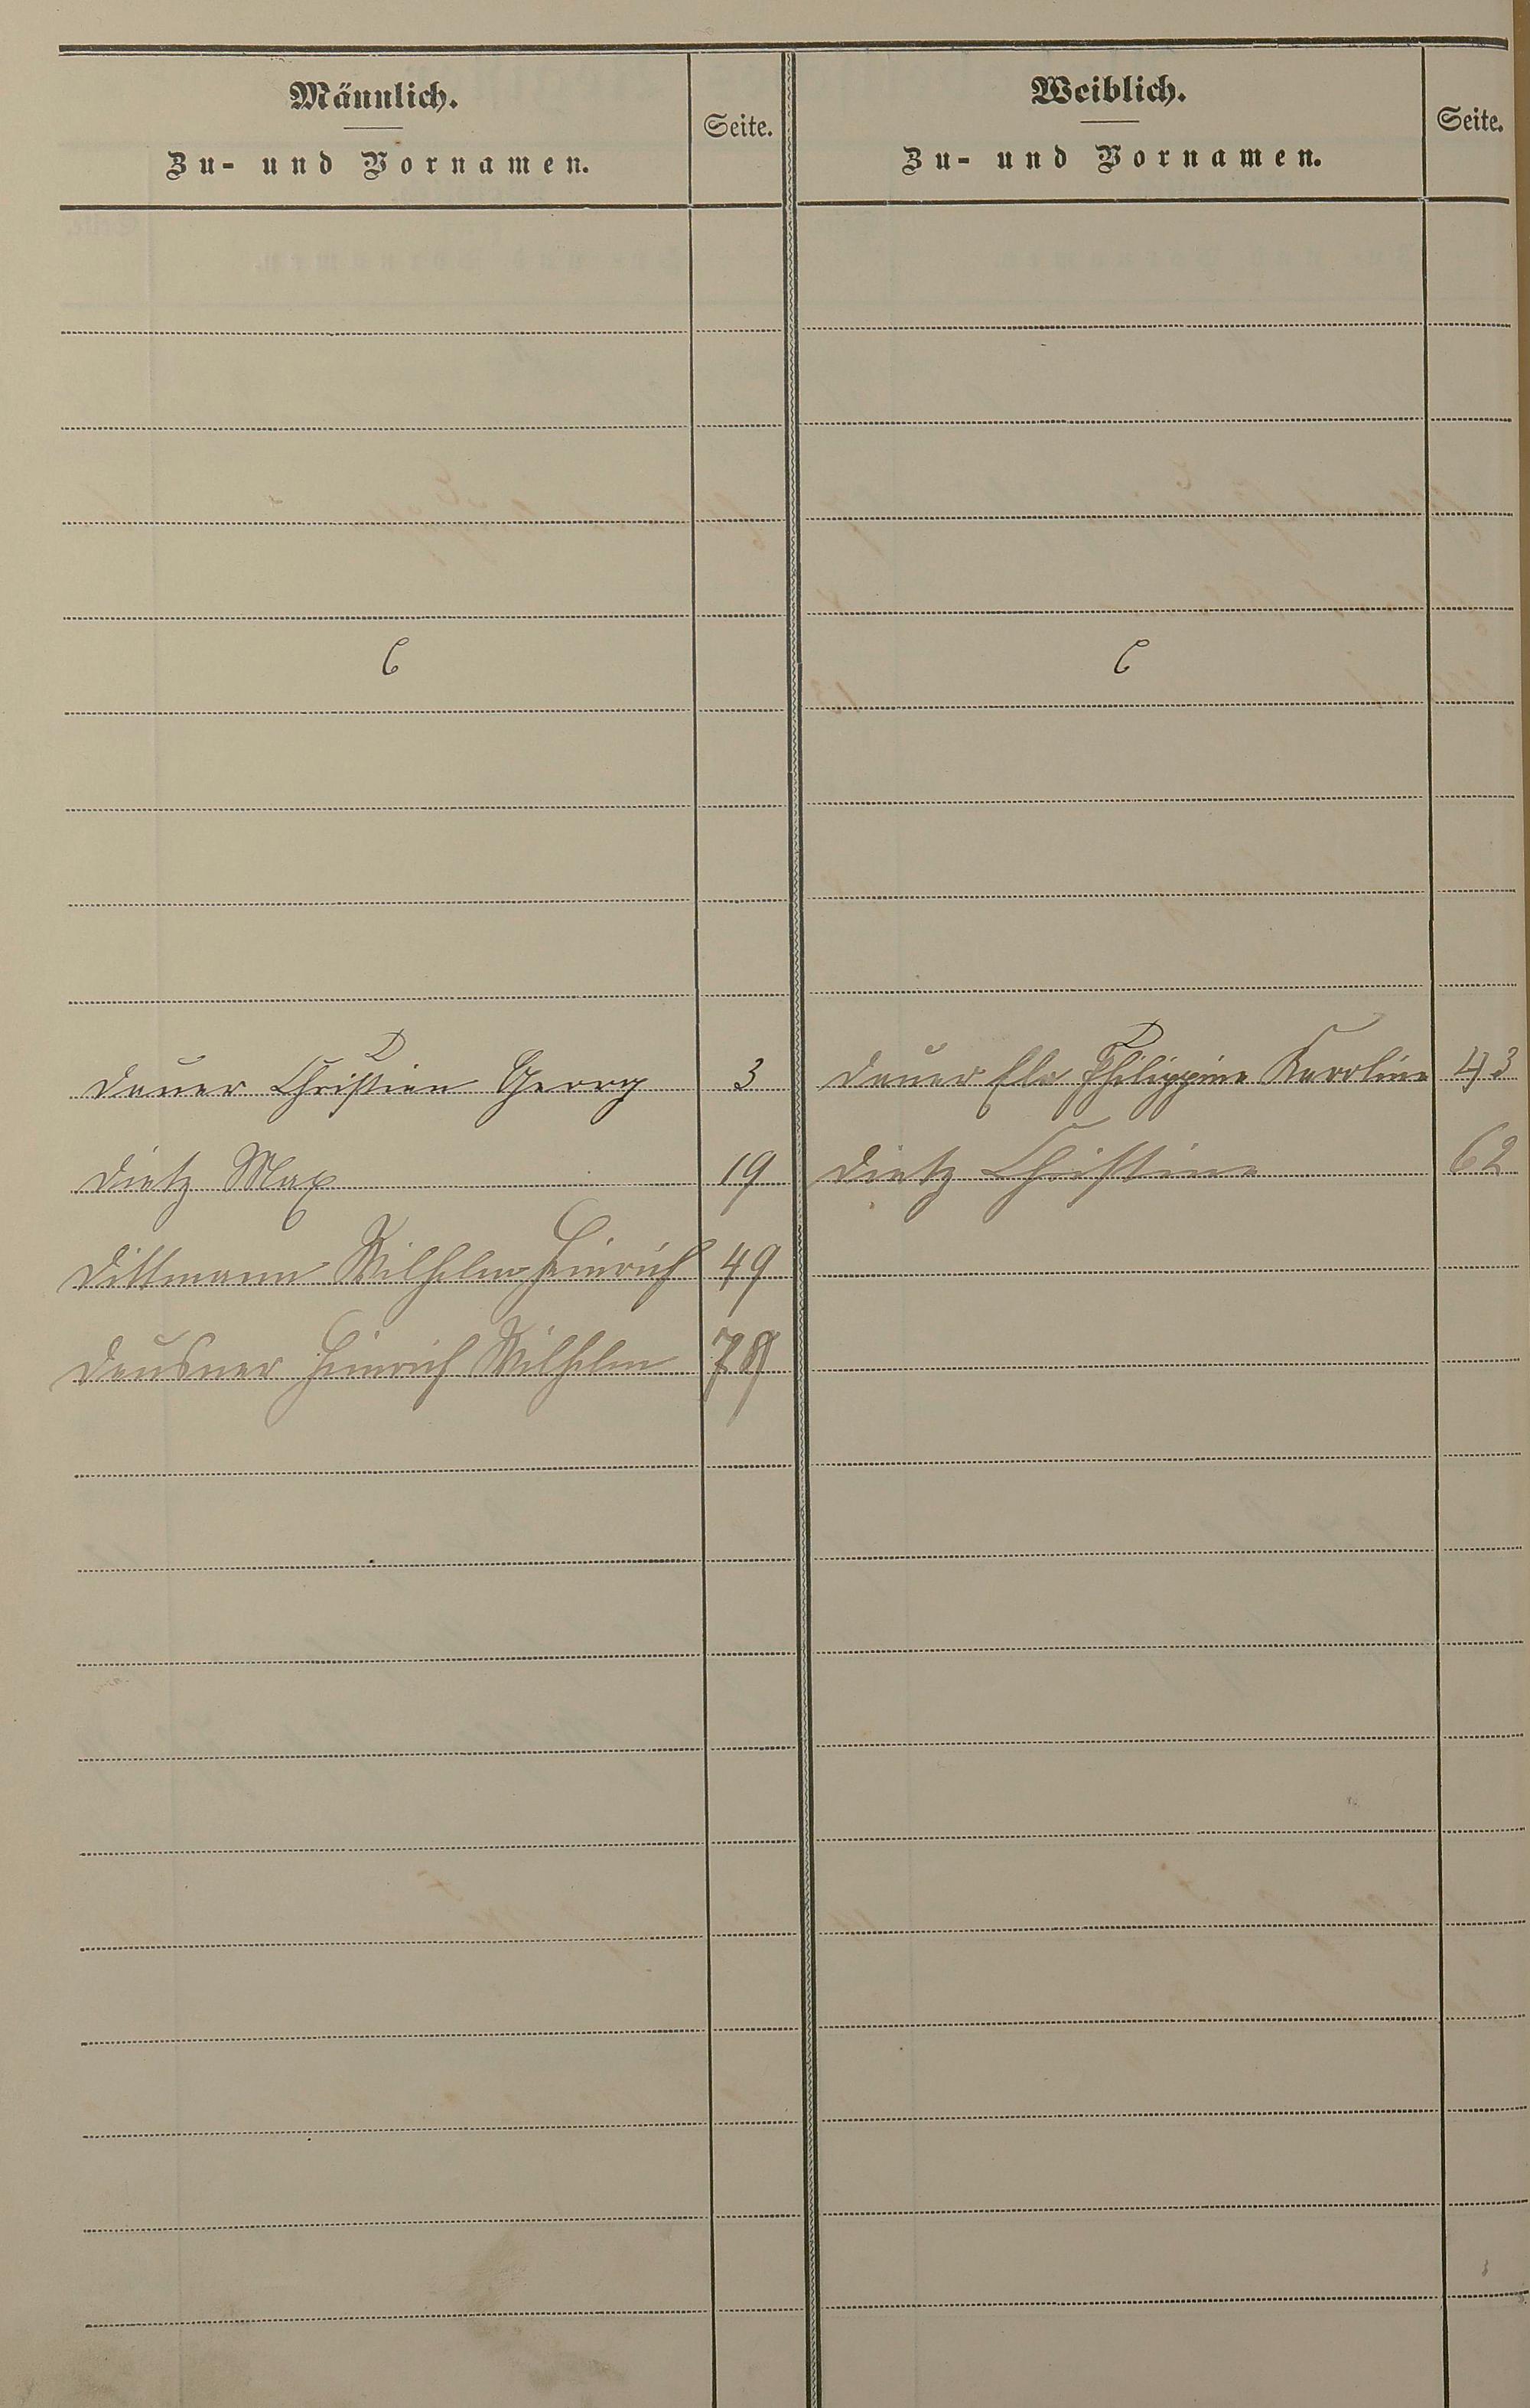 Männlich.
Zu- und Vornamen.
Seite.
Weiblich.
Zu- und Vornamen.
Seite.
C
C
D
D
Dauer Christian Georg 3
Dauer Ella Philippine Karoline 43
Dietz Max 19
Dietz Christine 62
Dittmann Wilhelm Heinrich 49
Deusner Heinrich Wilhelm